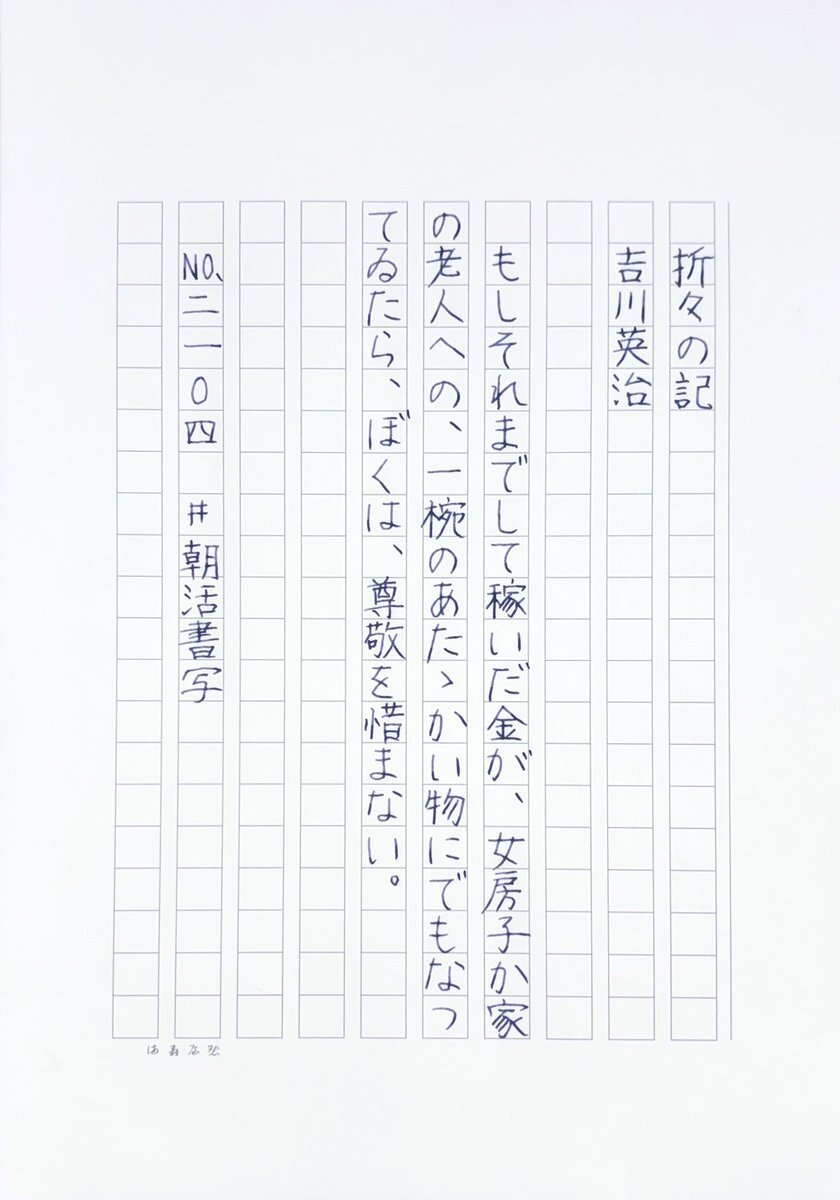 折々の記
吉川英治
もしそれまでして稼いだ金が、女房子か家
の老人への、一椀のあたゝかい物にでもなっ
てゐたら、ぼくは、尊敬を惜まない。
NO、二一〇四 #朝活書写